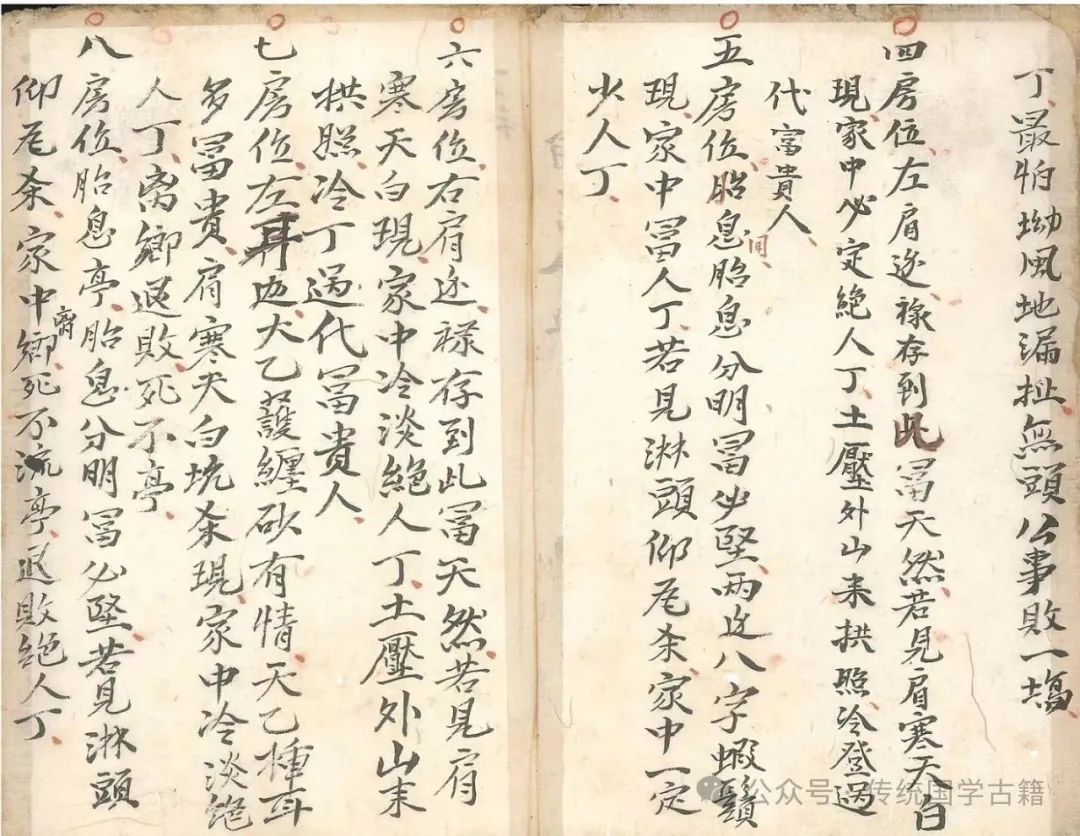 丁、最怕坳風地漏扯、無頭公事敗一塲、
四房位、左肩边、祿存到此冨天然、若見肩寒天白
現、家中必定絶人丁、土壓外山来拱照、冷登過
代富貴人、
五房位、胎息胎息分明冨必堅、兩边八字蝦鬚
現、家中冨人丁、若見淋頭仰尾杀、家中一定
少人丁、
六房位、右肩边、禄存到此冨天然、若見肩
寒天白現、家中冷淡絶人丁、土壓外山来
拱照、冷丁過代冨貴人、
七房位、左耳边、太乙護纏砂有情、天乙揷耳
多冨貴、肩寒天白坑杀現、家中冷淡絶
人丁、离鄉退敗死不亭、
八房位、胎息亭、胎息分明冨必堅、若見淋頭
仰尾杀、家中离鄉死不流亭、退敗絶人丁、
公众号：传统国学古籍